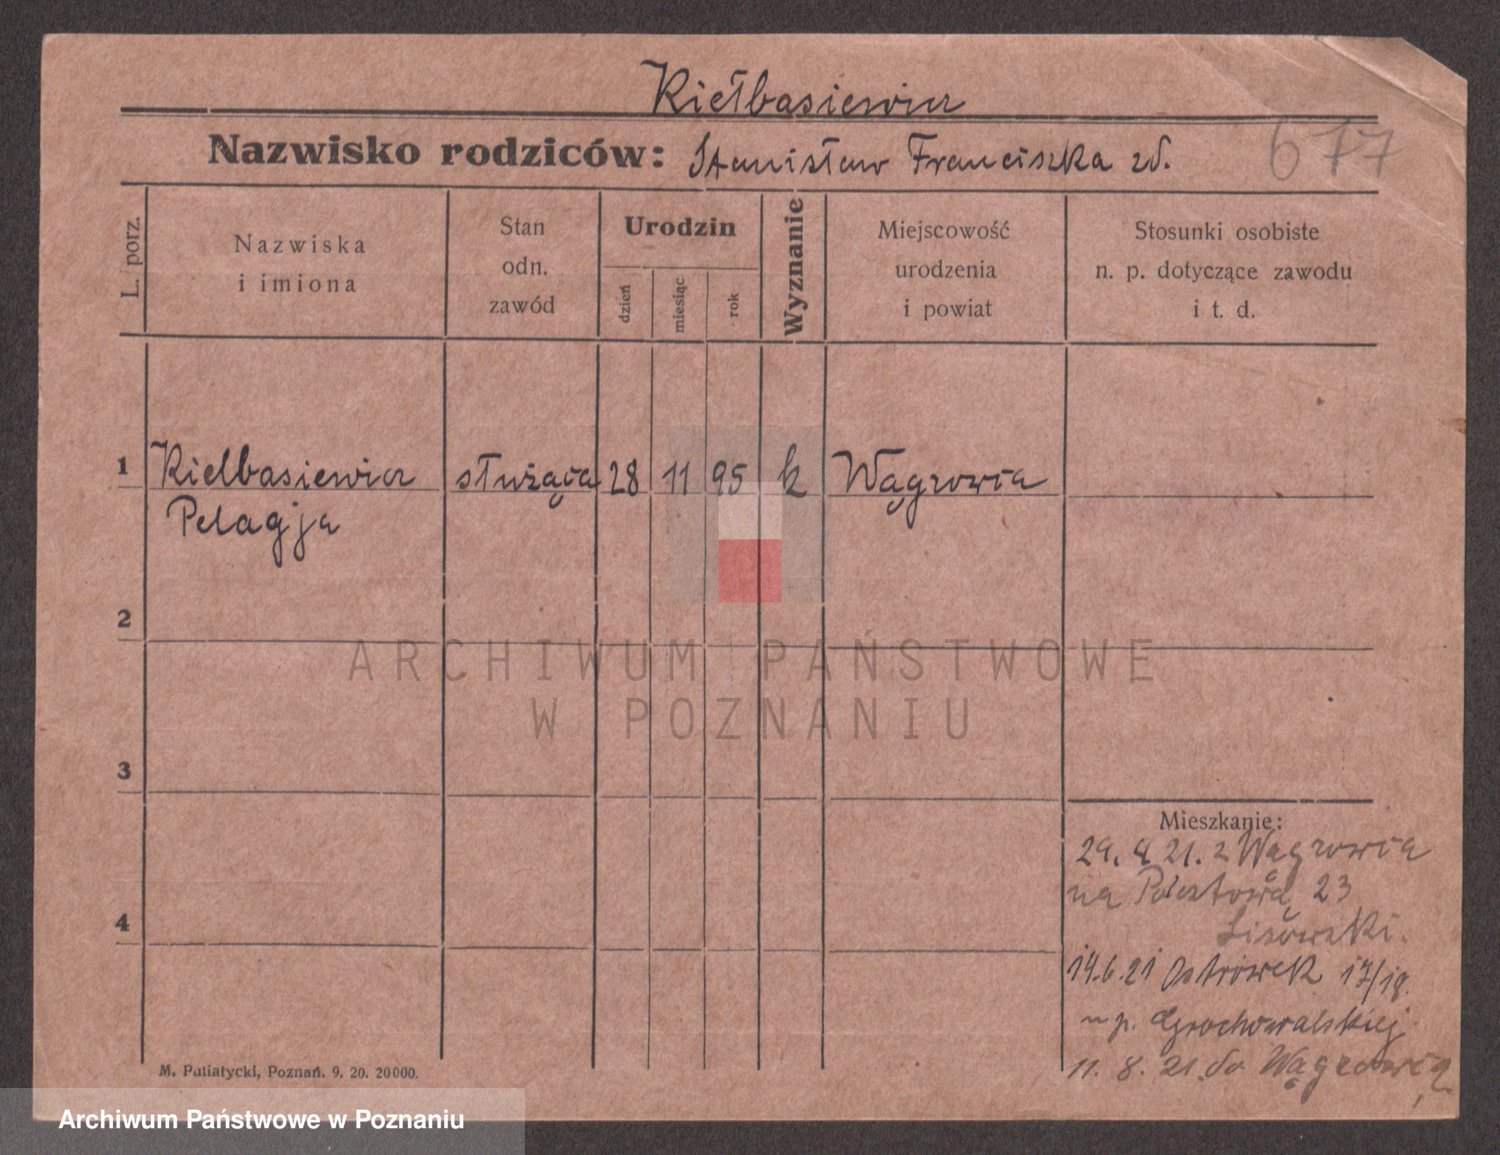 Kiełbasiewicz
Nazwisko rodziców: Stanisław Franciszka zd.
677
L. porz.
Nazwiska
i imiona
Stan
odn.
zawód
Urodzin
dzień
miesiąc
rok
Wyznanie
Miejscowość
urodzenia
i powiat
Stosunki osobiste
n. p. dotyczące zawodu
i t. d.
1 Kielbasiewicz służąca 28 11 95 k Wągrowia
Pelagja
2
ARCHIWUM PAŃSTWOWE
W POZNANIU
3
Mieszkanie:
29. 4 21. z Wągrowca
na Pocztowa 23
Lisowski.
4
14.6.21 Ostrówek 17/18.
u p. Grochowalskiej
11. 8. 21 do Wągrowca
M. Putiatycki, Poznań. 9. 20. 20000.
Archiwum Państwowe w Poznaniu